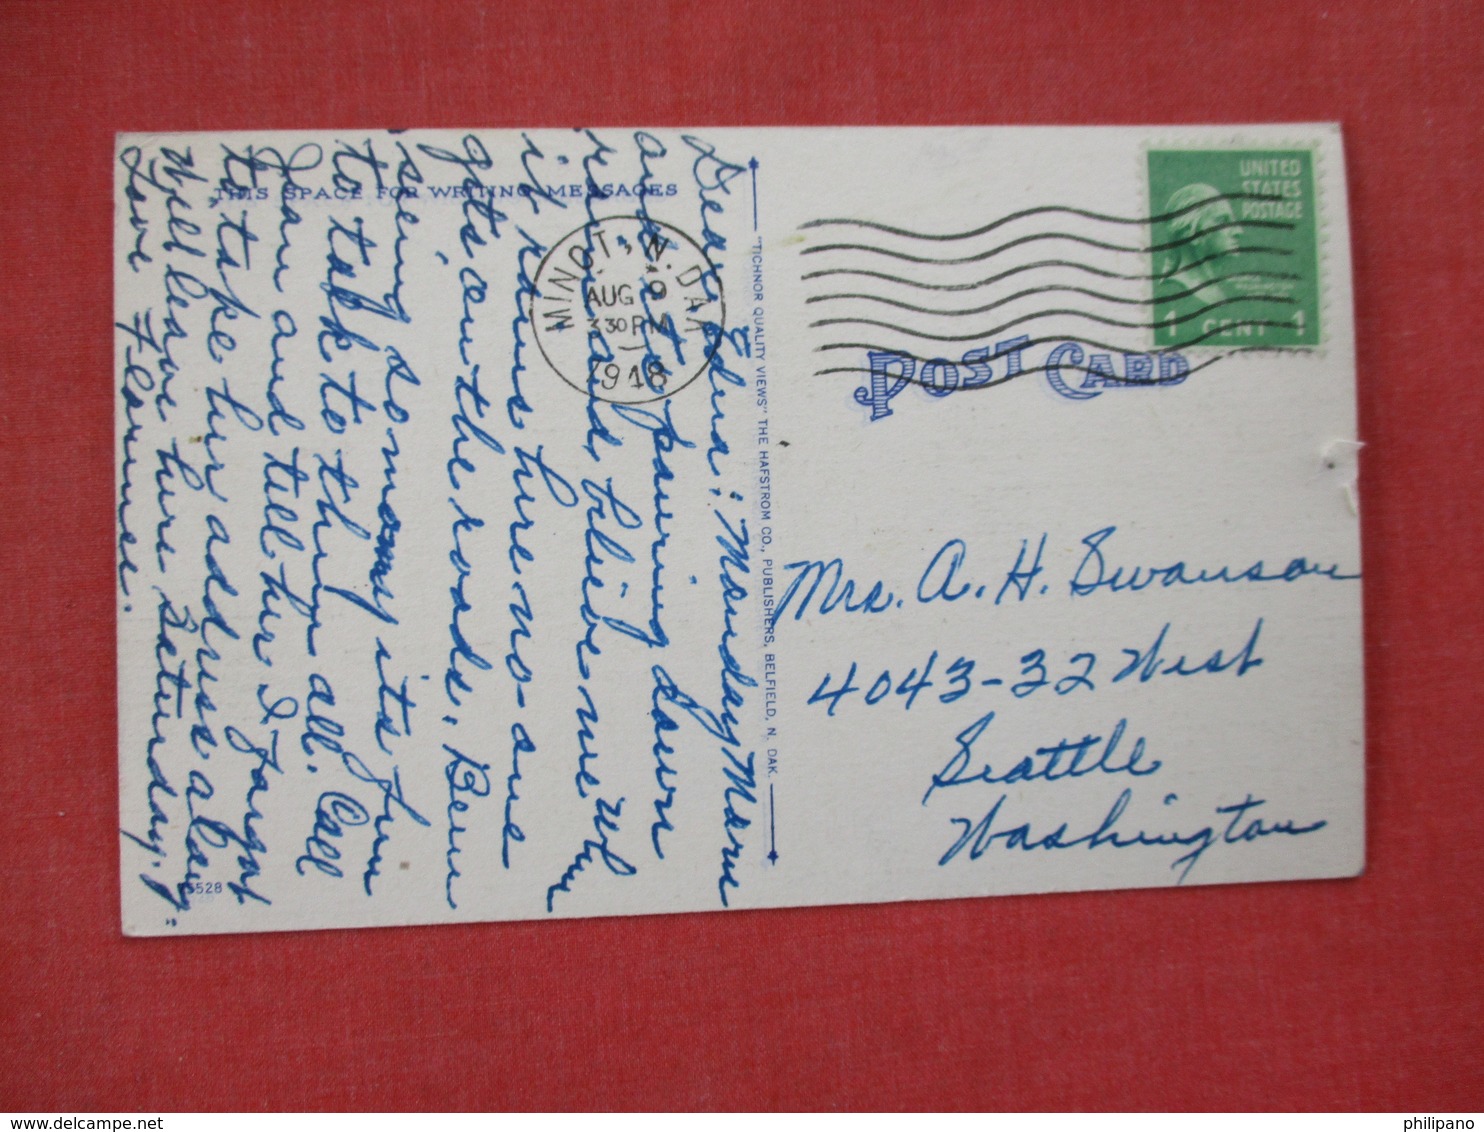 THIS SPACE FOR WRITING MESSAGES
Monday Morn
Dear Edna:
and it pouring down
rain, and, believe me when
it rains here no-one
gets out on the roads. Been
seeing so many its fun
to talk to them all. Call
Jean and tell her I forgot
to take her address along.
Will leave here Saturday.
Love Florence.
5528
"TICHNOR QUALITY VIEWS" THE HAFSTROM CO., PUBLISHERS, BELFIELD, N. DAK.
MINOT, N. DAK
AUG 9
3 30 PM
1948
UNITED
STATES
POSTAGE
1 CENT 1
POST CARD
Mrs. A. H. Swanson
4043-32 West
Seattle
Washington
philipano
delcampe.net